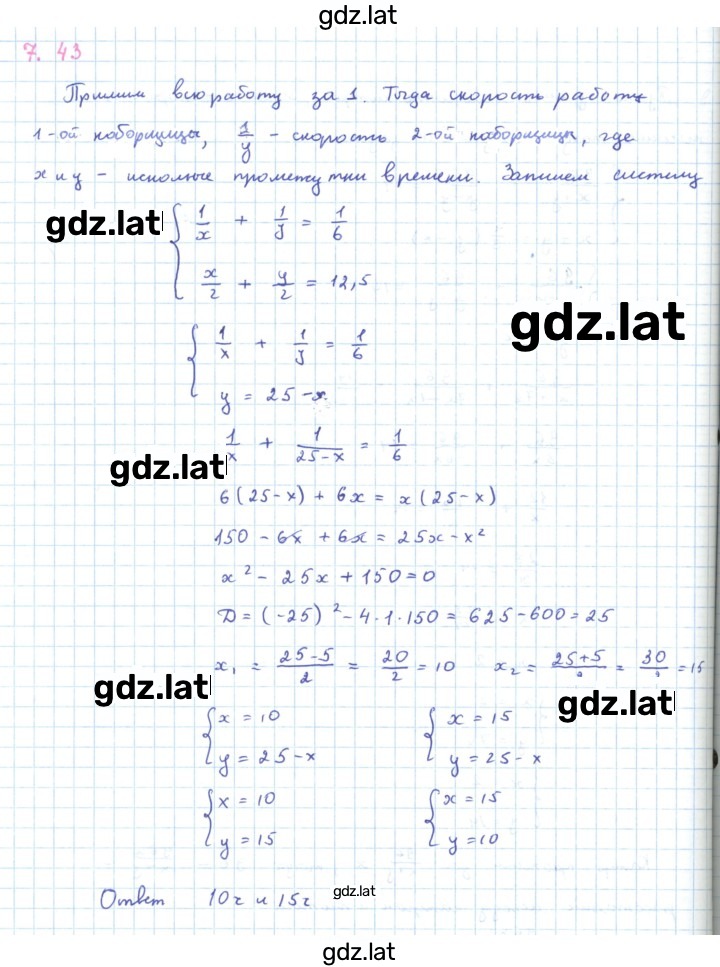 gdz.lat
7. 43
Примим всю работу за 1. Тогда скорость работы
1-ой наборщицы, 1/y - скорость 2-ой наборщицы, где
x и y - искомые промежутки времени. Запишем систему
gdz.lat
{ 1/x + 1/y = 1/6
x/2 + y/2 = 12,5
gdz.lat
{ 1/x + 1/y = 1/6
y = 25 - x
1/x + 1/(25-x) = 1/6
gdz.lat
6(25-x) + 6x = x(25-x)
150 - 6x + 6x = 25x - x²
x² - 25x + 150 = 0
D = (-25)² - 4·1·150 = 625 - 600 = 25
x₁ = (25-5)/2 = 20/2 = 10 x₂ = (25+5)/2 = 30/2 = 15
gdz.lat
gdz.lat
{ x = 10 { x = 15
y = 25 - x y = 25 - x
{ x = 10 { x = 15
y = 15 y = 10
Ответ 10ч и 15ч
gdz.lat
gdz.lat